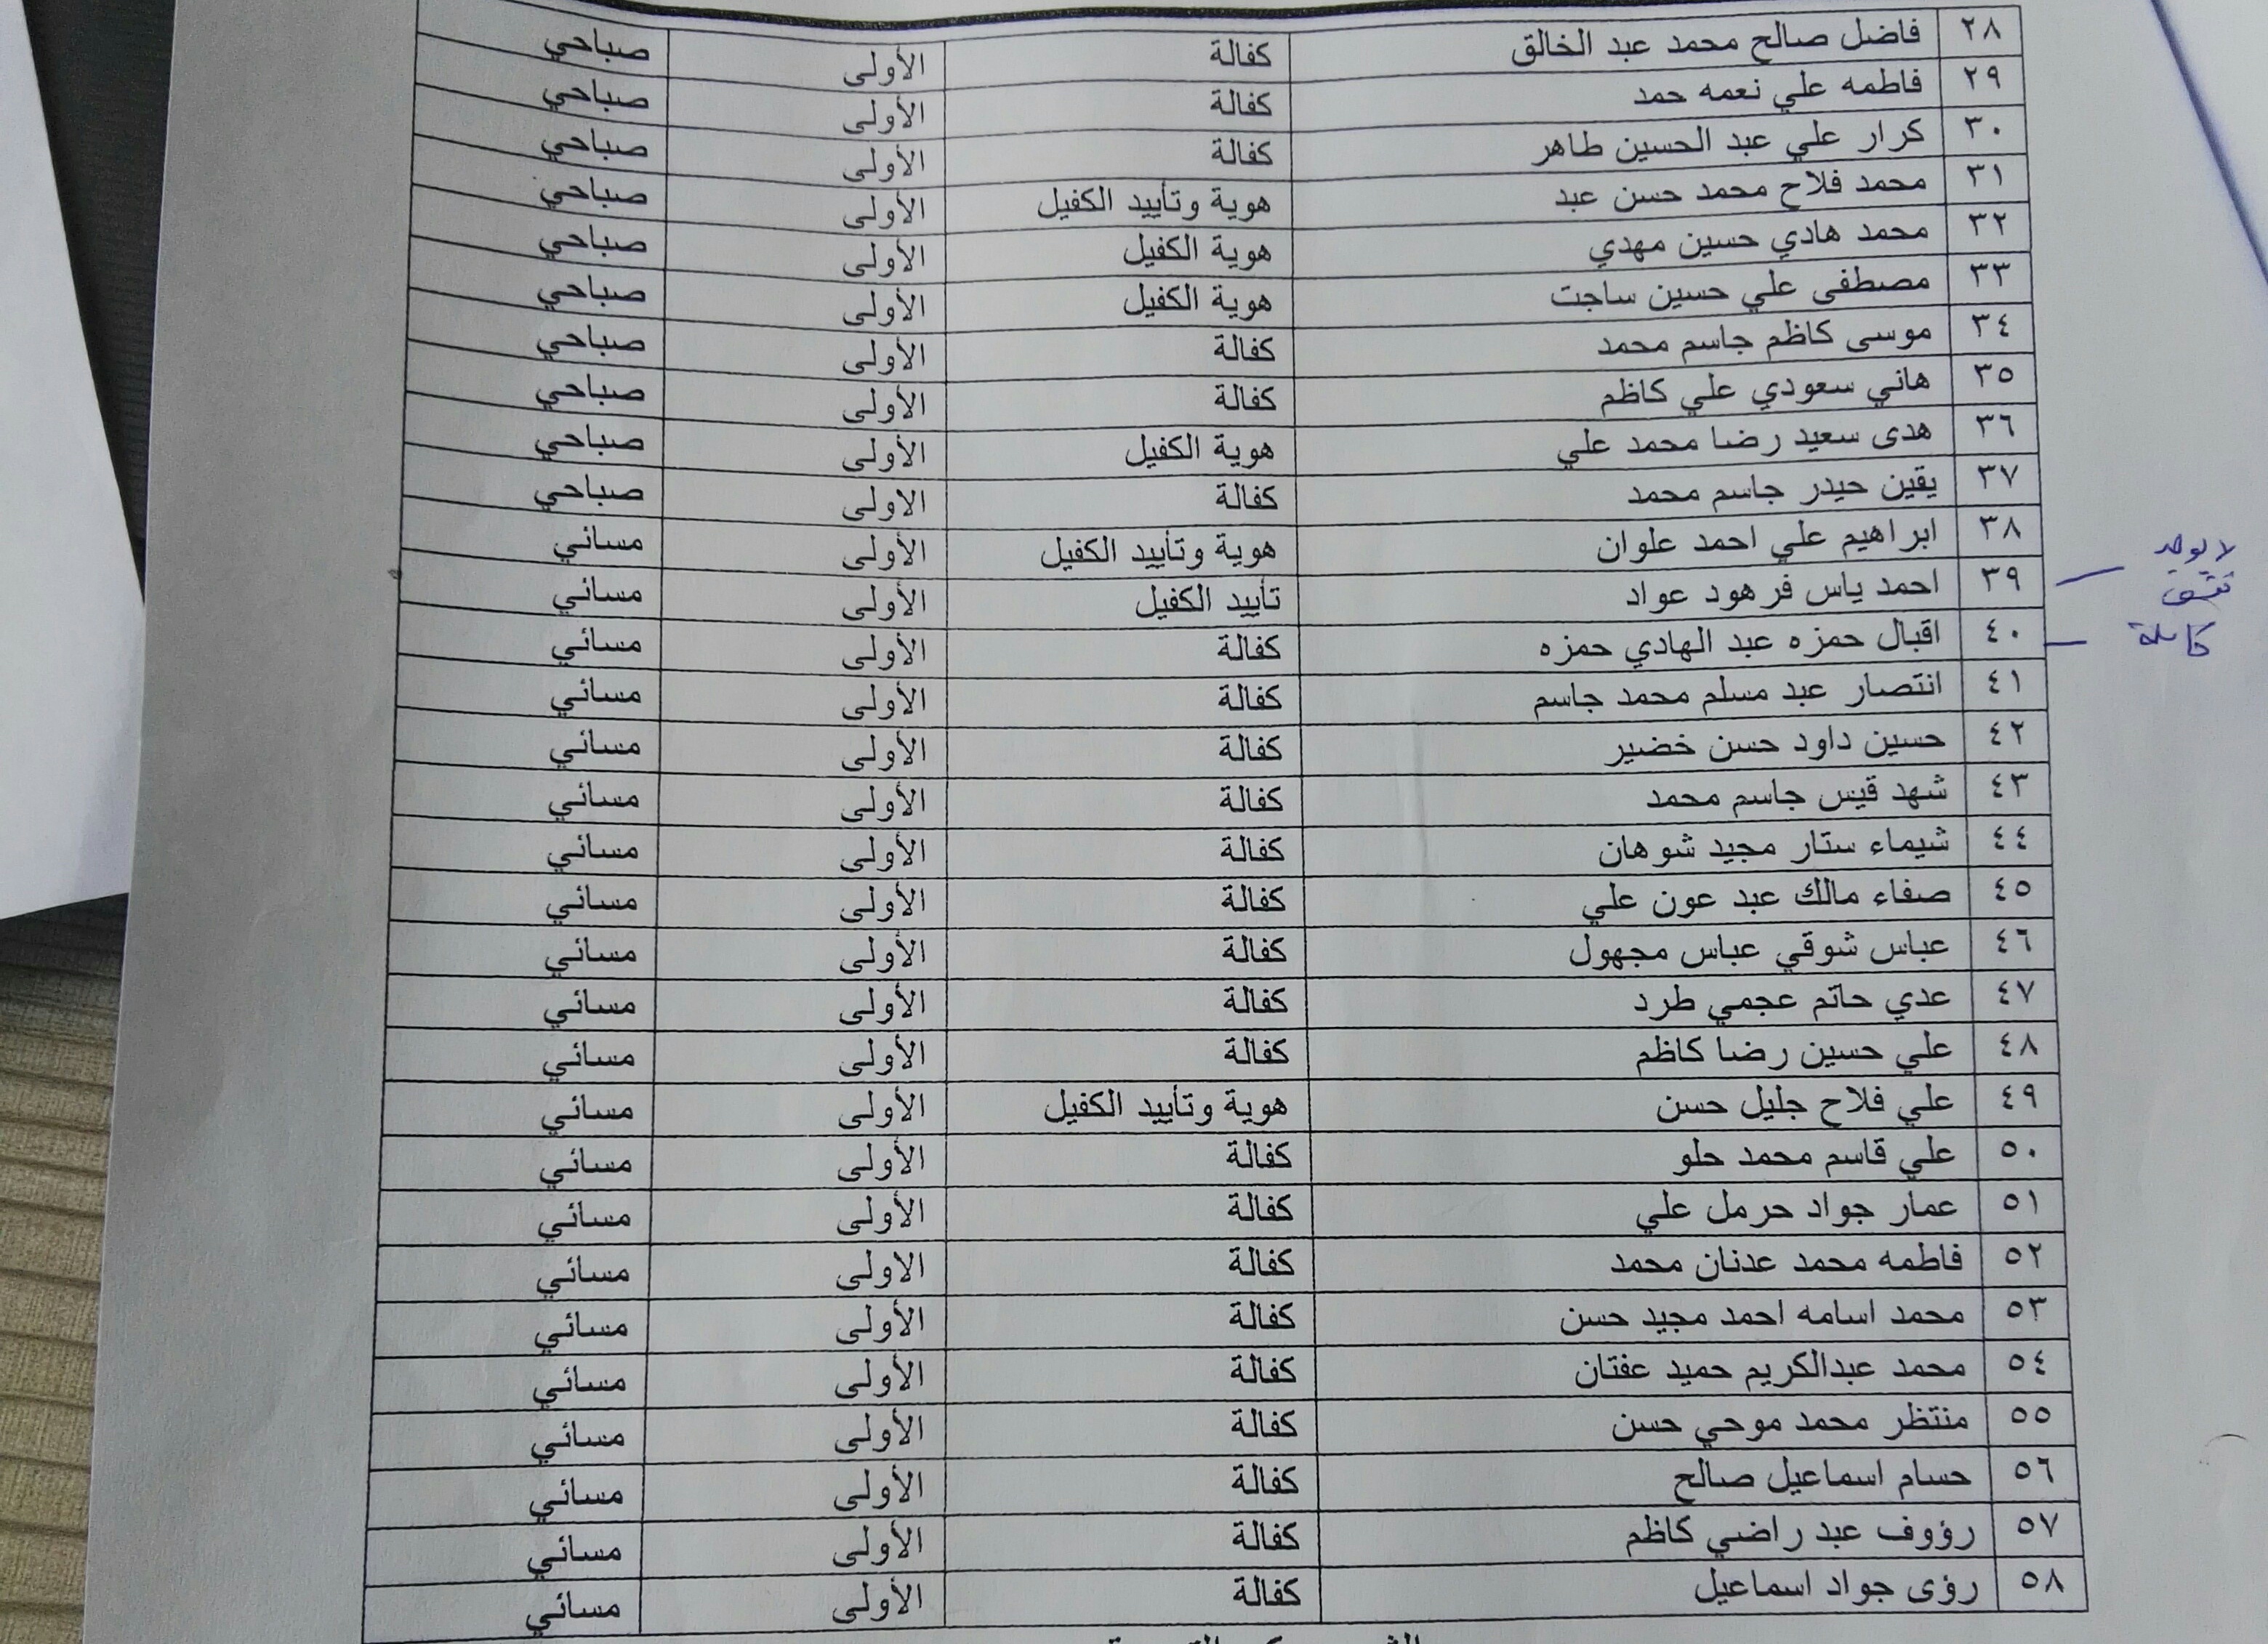 ٢٨ فاضل صالح محمد عبد الخالق كفالة الأولى صباحي
٢٩ فاطمه علي نعمه حمد كفالة الأولى صباحي
٣٠ كرار علي عبد الحسين طاهر كفالة الأولى صباحي
٣١ محمد فلاح محمد حسن عبد هوية وتأييد الكفيل الأولى صباحي
٣٢ محمد هادي حسين مهدي هوية الكفيل الأولى صباحي
٣٣ مصطفى علي حسين ساجت هوية الكفيل الأولى صباحي
٣٤ موسى كاظم جاسم محمد كفالة الأولى صباحي
٣٥ هاني سعودي علي كاظم كفالة الأولى صباحي
٣٦ هدى سعيد رضا محمد علي هوية الكفيل الأولى صباحي
٣٧ يقين حيدر جاسم محمد كفالة الأولى صباحي
٣٨ ابراهيم علي احمد علوان هوية وتأييد الكفيل الأولى مسائي
٣٩ احمد ياس فرهود عواد تأييد الكفيل الأولى مسائي
لا يوجد
نقص
٤٠ اقبال حمزه عبد الهادي حمزه كفالة الأولى مسائي
كاملة
٤١ انتصار عبد مسلم محمد جاسم كفالة الأولى مسائي
٤٢ حسين داود حسن خضير كفالة الأولى مسائي
٤٣ شهد قيس جاسم محمد كفالة الأولى مسائي
٤٤ شيماء ستار مجيد شوهان كفالة الأولى مسائي
٤٥ صفاء مالك عبد عون علي كفالة الأولى مسائي
٤٦ عباس شوقي عباس مجهول كفالة الأولى مسائي
٤٧ عدي حاتم عجمي طرد كفالة الأولى مسائي
٤٨ علي حسين رضا كاظم كفالة الأولى مسائي
٤٩ علي فلاح جليل حسن هوية وتأييد الكفيل الأولى مسائي
٥٠ علي قاسم محمد حلو كفالة الأولى مسائي
٥١ عمار جواد حرمل علي كفالة الأولى مسائي
٥٢ فاطمه محمد عدنان محمد كفالة الأولى مسائي
٥٣ محمد اسامه احمد مجيد حسن كفالة الأولى مسائي
٥٤ محمد عبدالكريم حميد عفتان كفالة الأولى مسائي
٥٥ منتظر محمد موحي حسن كفالة الأولى مسائي
٥٦ حسام اسماعيل صالح كفالة الأولى مسائي
٥٧ رؤوف عبد راضي كاظم كفالة الأولى مسائي
٥٨ رؤى جواد اسماعيل كفالة الأولى مسائي